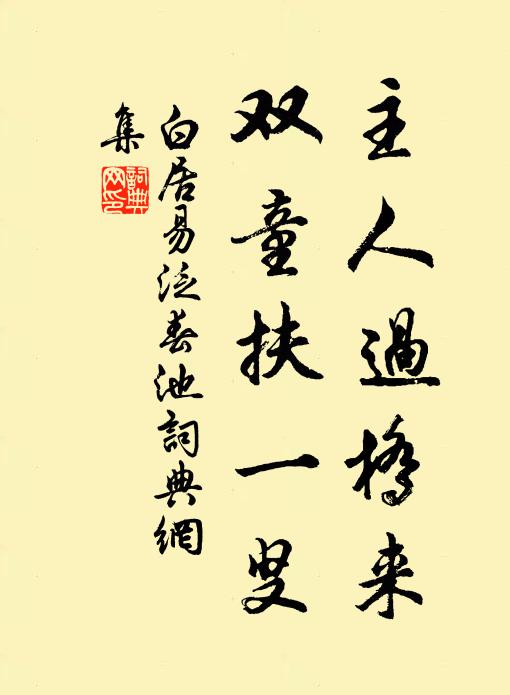 主人過橋来
双童扶一叟
白居易泛春池詞典網
集
詞典网印